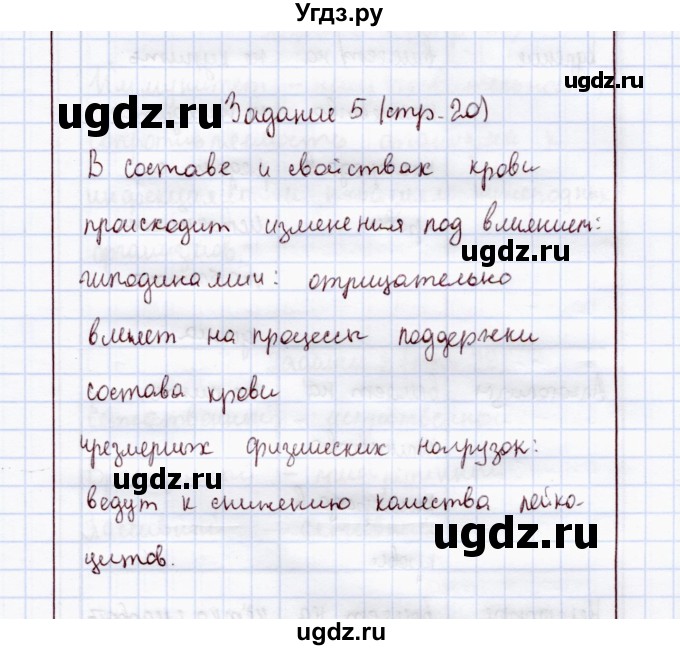 Угдз.ру
Задание 5 (стр. 20)
ugdz.ru
В составе и свойствах крови
происходит изменения под влиением:
ugdz.ru
гиподинамии: отрицательно
влияет на процессы поддержки
состава крови
чрезмерных физических нагрузок:
ugdz.ru
ведут к снижению качества лейко-
ugdz.ru
цитов.
ugdz.ru